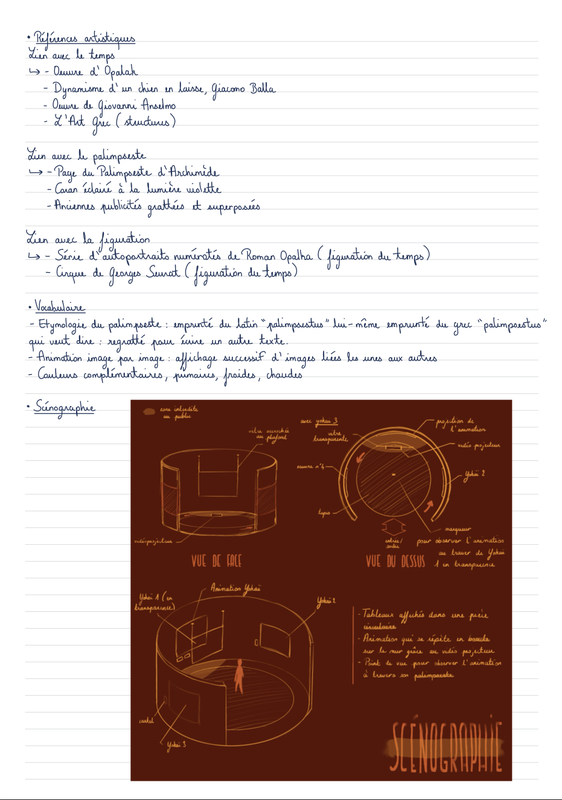 • Références artistiques
Lien avec le temps
↳ - Oeuvre d'Opalak
- Dynamisme d'un chien en laisse, Giacomo Balla
- Oeuvre de Giovanni Anselmo
- L'Art Grec (structures)
Lien avec le palimpseste
↳ - Page du Palimpseste d'Archimède
- Coran éclairé à la lumière violette
- Anciennes publicités grattées et superposées
Lien avec la figuration
↳ - Série d'autoportraits numérotés de Roman Opalha (figuration du temps)
- Cirque de Georges Seurat (figuration du temps)
• Vocabulaire
- Etymologie du palimpseste : emprunté du latin "palimpsestus" lui-même emprunté du grec "palimpsestus"
qui veut dire : regratté pour écrire un autre texte.
- Animation image par image : affichage successif d'images liées les unes aux autres
- Couleurs complémentaires, primaires, froides, chaudes
• Scénographie
zone interdite
au public
vitre accrochée
au plafond
vidéo projecteur
VUE DE FACE
avec Yokai 3
vitre
transparente
projection de
l'animation
vidéo projecteur
oeuvre n°3
Yokai 2
ligne
entrée/
sortie
marqueur
pour observer l'animation
au travers de Yokai
1 en transparence
VUE DU DESSUS
Yokai 1 (en
transparence)
Animation Yokai
Yokai 2
cartel
Yokai 3
- Tableaux affichés dans une pièce
circulaire
- Animation qui se répète en boucle
sur le mur grâce au vidéo projecteur
- Point de vue pour observer l'animation
à travers son palimpseste
SCÉNOGRAPHIE